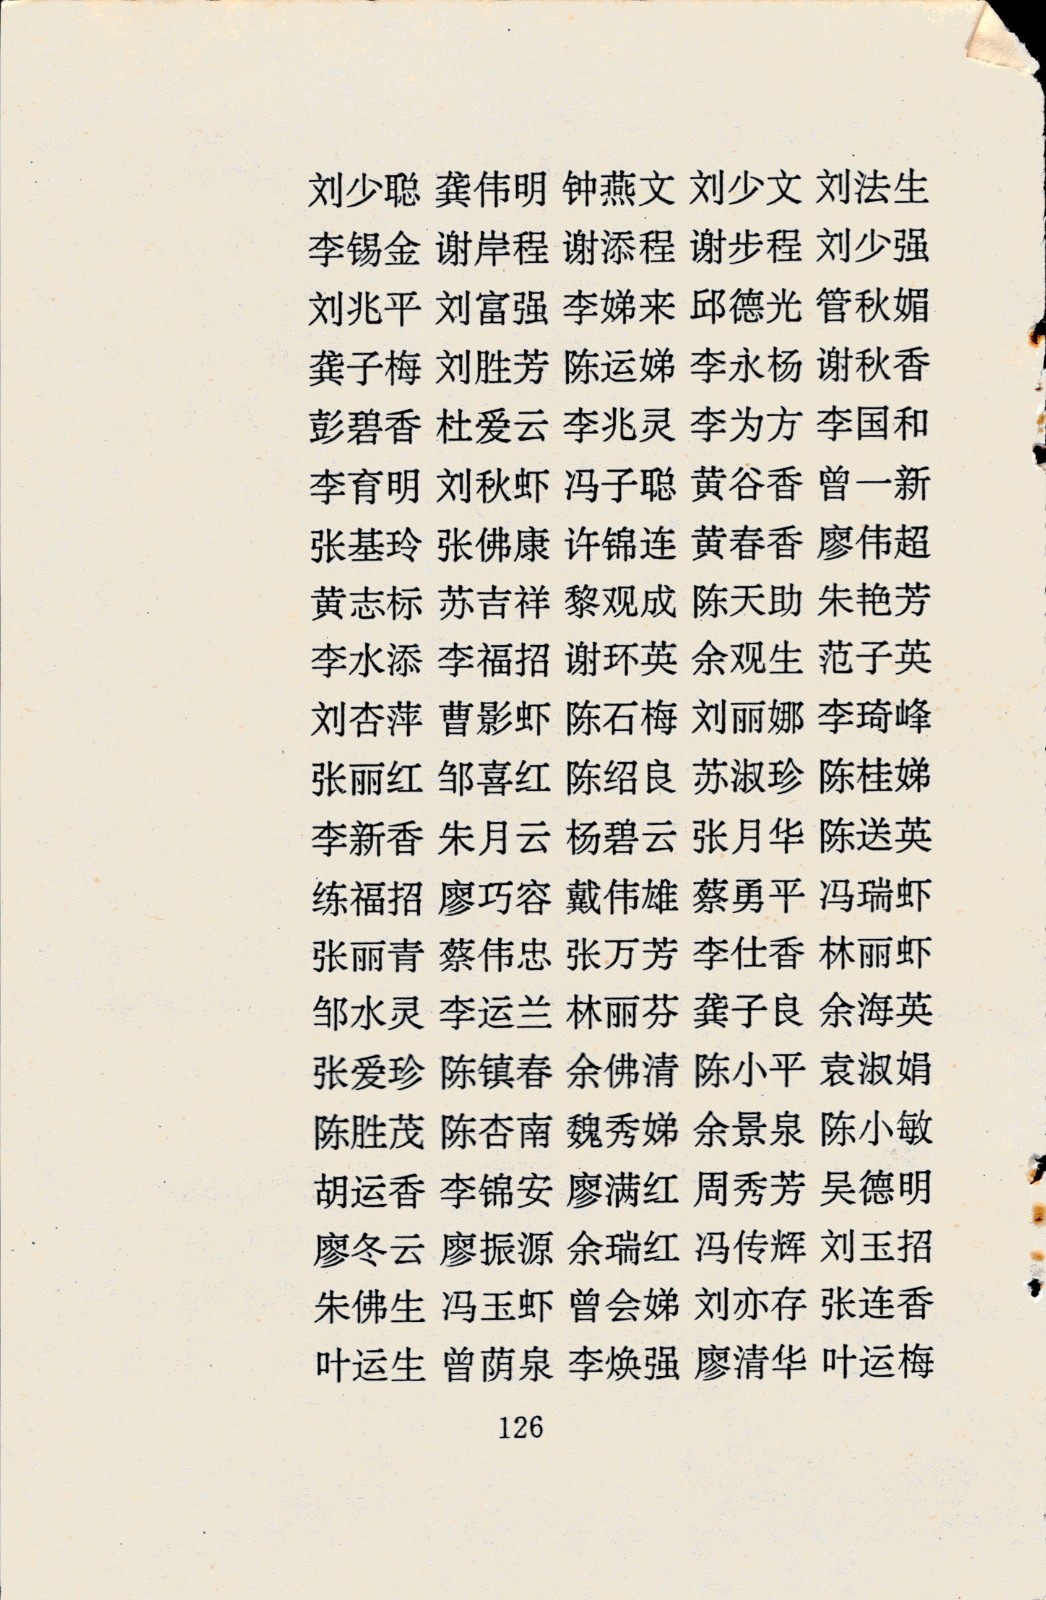 刘少聪 龚伟明 钟燕文 刘少文 刘法生
李锡金 谢岸程 谢添程 谢步程 刘少强
刘兆平 刘富强 李娣来 邱德光 管秋媚
龚子梅 刘胜芳 陈运娣 李永杨 谢秋香
彭碧香 杜爱云 李兆灵 李为方 李国和
李育明 刘秋虾 冯子聪 黄谷香 曾一新
张基玲 张佛康 许锦连 黄春香 廖伟超
黄志标 苏吉祥 黎观成 陈天助 朱艳芳
李水添 李福招 谢环英 余观生 范子英
刘杏萍 曹影虾 陈石梅 刘丽娜 李琦峰
张丽红 邹喜红 陈绍良 苏淑珍 陈桂娣
李新香 朱月云 杨碧云 张月华 陈送英
练福招 廖巧容 戴伟雄 蔡勇平 冯瑞虾
张丽青 蔡伟忠 张万芳 李仕香 林丽虾
邹水灵 李运兰 林丽芬 龚子良 余海英
张爱珍 陈镇春 余佛清 陈小平 袁淑娟
陈胜茂 陈杏南 魏秀娣 余景泉 陈小敏
胡运香 李锦安 廖满红 周秀芳 吴德明
廖冬云 廖振源 余瑞红 冯传辉 刘玉招
朱佛生 冯玉虾 曾会娣 刘亦存 张连香
叶运生 曾荫泉 李焕强 廖清华 叶运梅
126